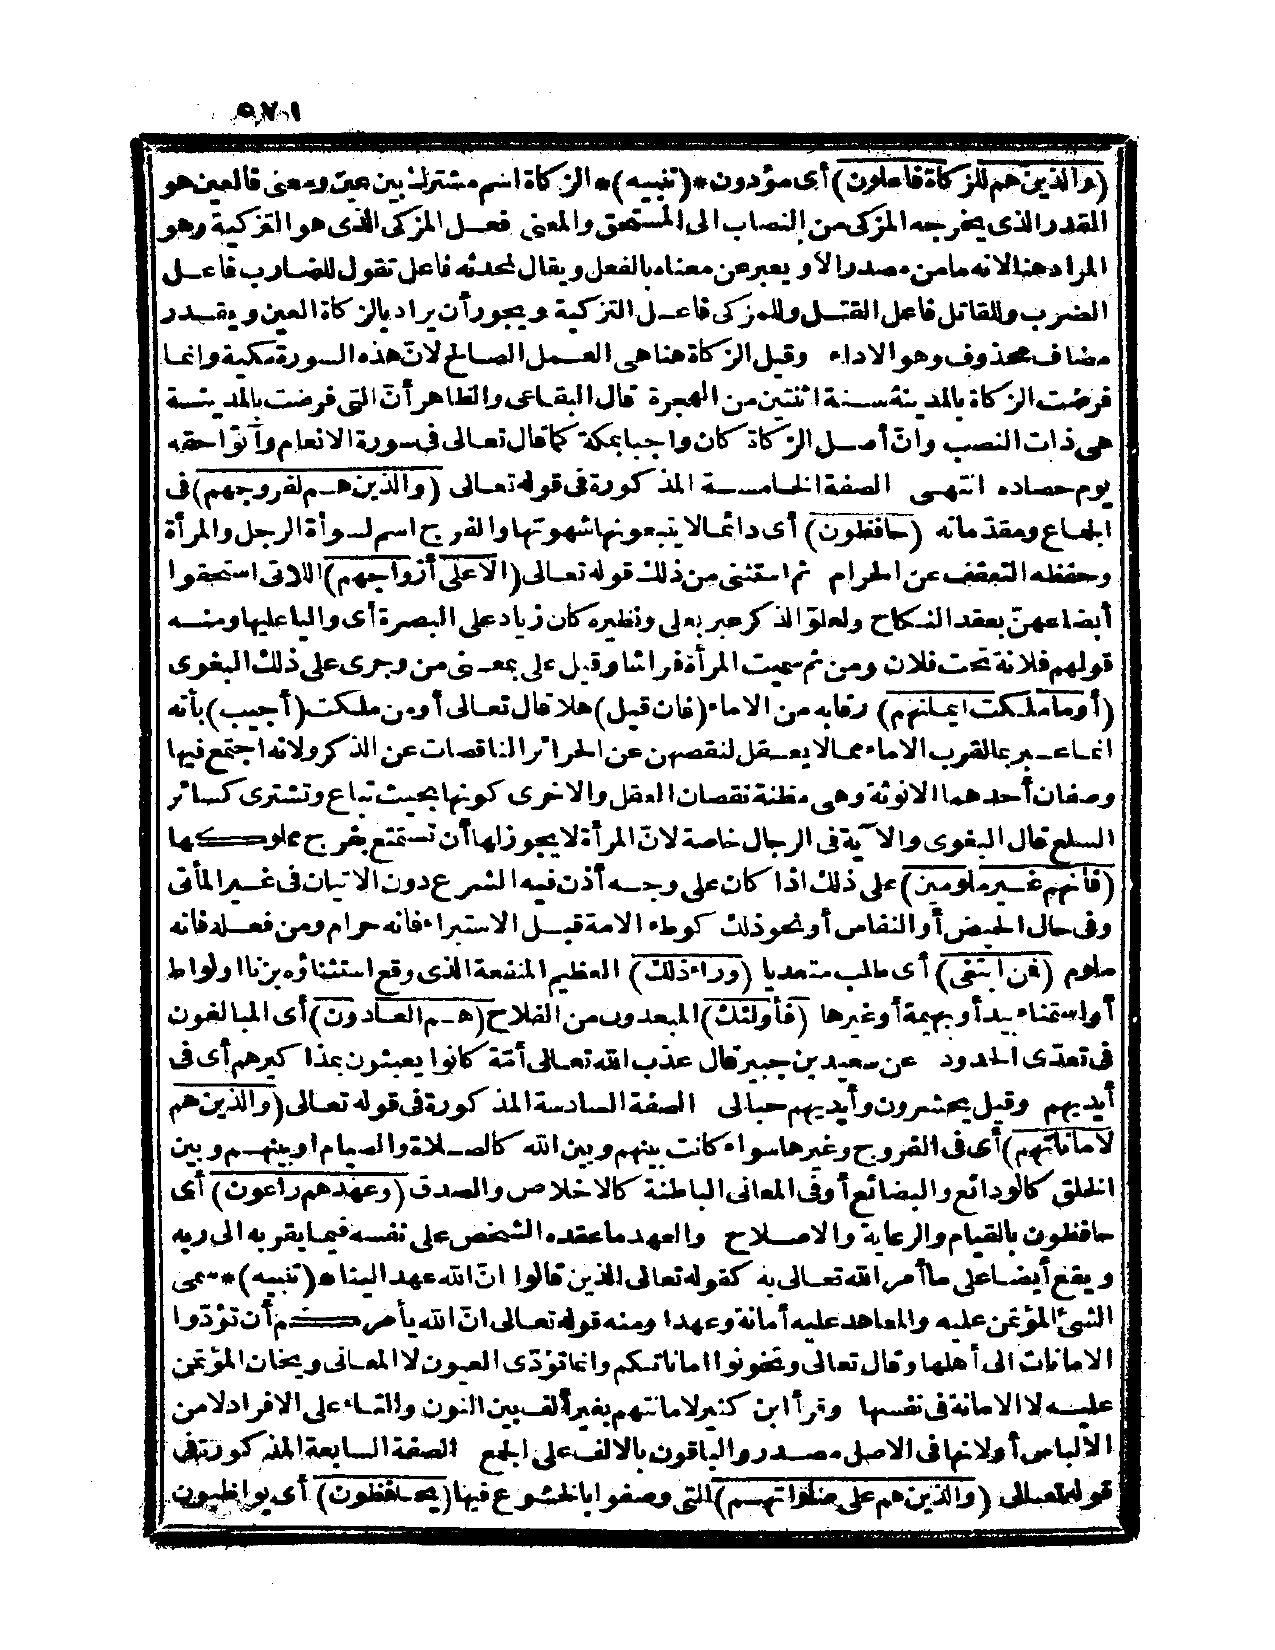 (والذين هم للزكاة فاعلون) أى مؤدون *(تنبيه)* الزكاة اسم مشترك بين عين ومعنى فالعين هو
القدر الذى يخرجه المزكى من النصاب الى المستحق والمعنى فعل المزكى الذى هو التزكية وهو
المراد هنا لانه ما من مصدر الا ويعبر عن معناه بالفعل ويقال لمحدثه فاعل تقول للضارب فاعل
الضرب وللقاتل فاعل القتل وللمزكى فاعل التزكية ويجوز أن يراد بالزكاة العين ويقدر
مضاف محذوف وهو الاداء وقيل الزكاة هنا هى العمل الصالح لانّ هذه السورة مكية وانما
فرضت الزكاة بالمدينة سنة اثنتين من الهجرة قال البقاعى والظاهر أنّ التى فرضت بالمدينة
هى ذات النصب وانّ أصل الزكاة كان واجبا بمكة كما قال تعالى فى سورة الانعام وآتوا حقه
يوم حصاده انتهى الصفة الخامسة المذكورة فى قوله تعالى (والذين هم لفروجهم) فى
الجماع ومقدّماته (حافظون) أى دائما لا يتبعونها شهوتها والفرج اسم لسوأة الرجل والمرأة
وحفظه التعفف عن الحرام ثم استثنى من ذلك قوله تعالى (الا على أزواجهم) اللاتى استحقوا
أبضاعهنّ بعقد النكاح ولعلوّ الذكر عبر بعلى ونظيره كان زياد على البصرة أى واليا عليها ومنه
قولهم فلانة تحت فلان ومن ثم سميت المرأة فراشا وقيل على بمعنى من وجرى على ذلك البغوى
(أو ما ملكت ايمانهم) رقابه من الاماء (فان قيل) هلا قال تعالى أو من ملكت (أجيب) بأنه
انما عبر بما لقرب الاماء مما لا يعقل لنقصهن عن الحرائر الناقصات عن الذكر ولانه اجتمع فيها
وصفان أحدهما الانوثة وهى مظنة نقصان العقل والاخرى كونها بحيث تباع وتشترى كسائر
السلع قال البغوى والآية فى الرجال خاصة لانّ المرأة لا يجوز لها أن تستمتع بفرج مملوكها
(فانهم غير ملومين) على ذلك اذا كان على وجه أذن فيه الشرع دون الاتيان فى غير المأتى
وفى حال الحيض أو النفاس أو نحو ذلك كوطء الامة قبل الاستبراء فانه حرام ومن فعله فانه
ملوم (فمن ابتغى) أى طلب متعديا (وراء ذلك) العظيم المنفعة الذى وقع استثناؤه بزنا او لواط
أو استمناء بيد أو بهيمة أو غيرها (فأولئك) المبعدون من الفلاح (هم العادون) أى المبالغون
فى تعدّى الحدود عن سعيد بن جبير قال عذب الله تعالى أمّة كانوا يعبثون بمذاكيرهم أى فى
أيديهم وقيل يحشرون وأيديهم حبالى الصفة السادسة المذكورة فى قوله تعالى (والذين هم
لاماناتهم) أى فى الفروج وغيرها سواء كانت بينهم وبين الله كالصلاة والصيام او بينهم وبين
الخلق كالودائع والبضائع أو فى المعانى الباطنة كالاخلاص والصدق (وعهدهم راعون) أى
حافظون بالقيام والرعاية والاصلاح والعهد ما عقده الشخص على نفسه فيما يقربه الى ربه
ويقع أيضا على ما أمر الله تعالى به كقوله تعالى الذين قالوا انّ الله عهد الينا *(تنبيه)* سمى
الشئ المؤتمن عليه والمعاهد عليه أمانة وعهدا ومنه قوله تعالى انّ الله يأمركم أن تؤدّوا
الامانات الى أهلها وقال تعالى وتخونوا اماناتكم وانما تؤدّى العيون لا المعانى ويخان المؤتمن
عليه لا الامانة فى نفسها وقرأ ابن كثير لامانتهم بغير ألف بين النون والتاء على الافراد لا من
الالباس أو لانها فى الاصل مصدر والباقون بالالف على الجمع الصفة السابعة المذكورة فى
قوله تعالى (والذين هم على صلواتهم) التى وصفوا بالخشوع فيها (يحافظون) أى يواظبون